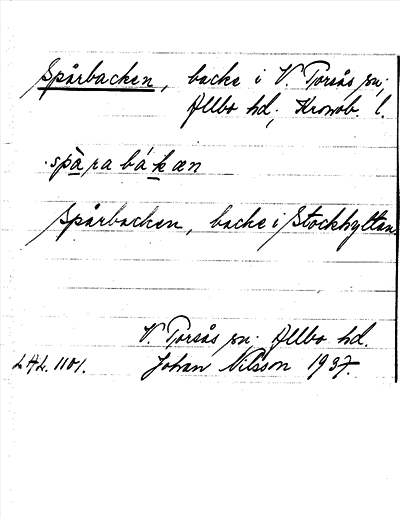 Spårbacken, backe i V. Torsås sn;
Allbo hd; Kronob. l.
spàrabákæn
Spårbacken, backe i Stockhyltan.
V. Torsås sn. Allbo hd.
LAL. 1101. Johan Nilsson 1937.